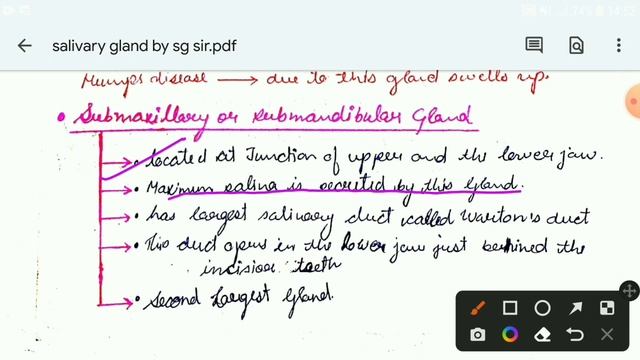 74% 14:53
salivary gland by sg sir.pdf
Mumps disease → due to this gland swells up.
• Submaxillary or submandibular Gland
→ • located at Junction of upper and the lower jaw.
→ • Maximum saliva is secreted by this Gland.
→ • has largest salivary duct called Warton's duct
→ • This duct opens in the lower jaw just behined the
incisior teeth
→ • second largest Gland.